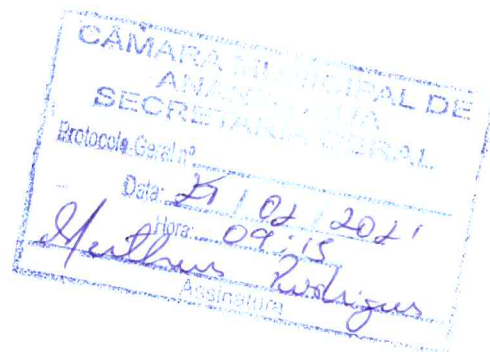 CÂMARA MUNICIPAL DE
SECRETARIA GERAL
Protocolo Geral nº
Data: / 02 / 2021
Hora: 09:15
Rodrigues
Assinatura